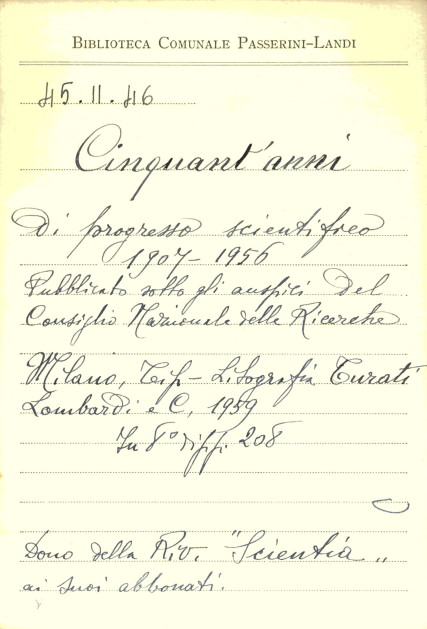 BIBLIOTECA COMUNALE PASSERINI-LANDI
45.11.46
Cinquant'anni
Di progresso scientifico
1907-1956
Pubblicato sotto gli auspici del
Consiglio Nazionale delle Ricerche
Milano, Tip-Litografia Turati
Lombardi e C, 1959
In 8° di pp. 208
Dono della Riv. "Scientia„
ai suoi abbonati.